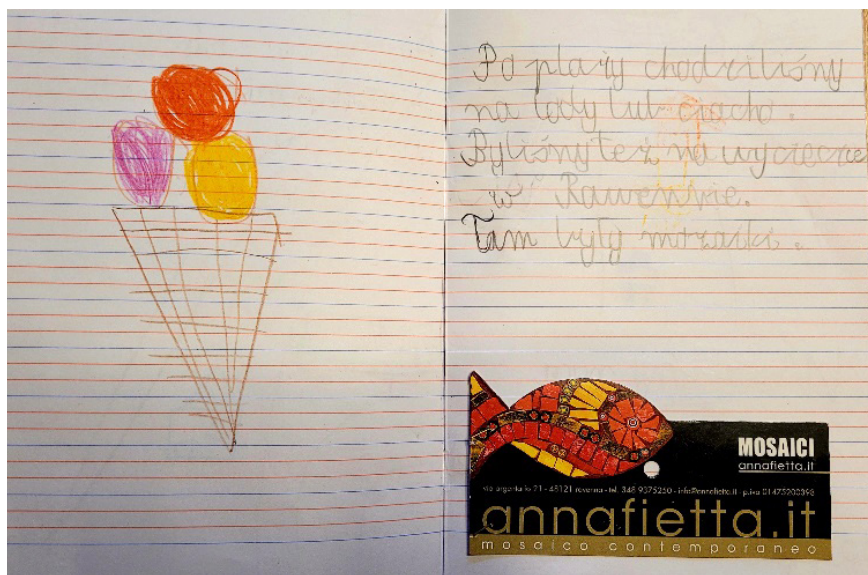 Po plaży chodziliśmy
na lody lub ciacho.
Byliśmy też na wycieczce
w Rawennie.
Tam były mozaiki.
MOSAICI
annafietta.it
via argentario 21 - 48121 ravenna - tel. 348 9375250 - info@annafietta.it - p.iva 01475200398
annafietta.it
mosaico contemporaneo